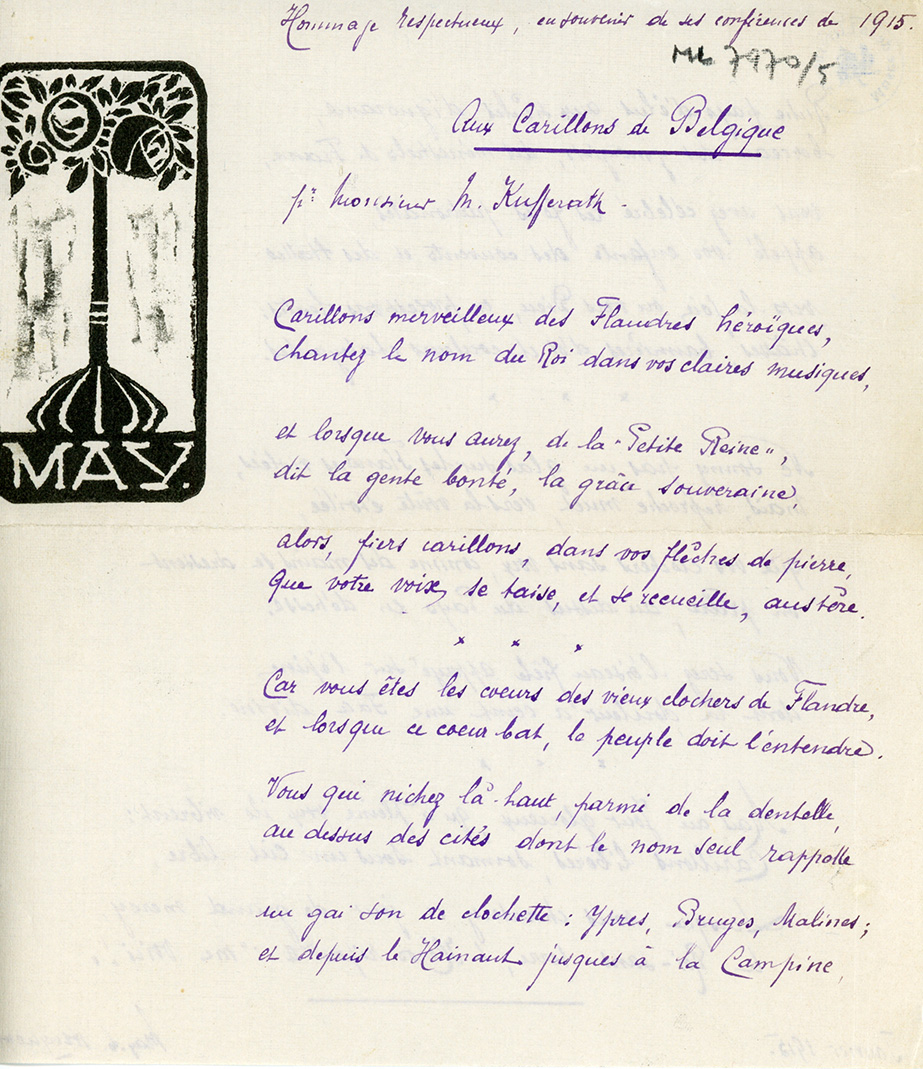 Hommage respectueux, en souvenir de ses conférences de 1915.
ML 7970/5
Aux Carillons de Belgique
pr Monsieur M. Kufferath.
MAY.
Carillons merveilleux des Flandres héroïques,
chantez le nom du Roi dans vos claires musiques,
et lorsque vous aurez, de la "Petite Reine",
dit la gente bonté, la grâce souveraine,
alors, fiers carillons, dans vos flêches de pierre,
que votre voix se taise, et se recueille, austère.
x x x
Car vous êtes les coeurs des vieux clochers de Flandre,
et lorsque ce coeur bat, le peuple doit l'entendre.
Vous qui nichez là-haut, parmi de la dentelle,
au dessus des cités dont le nom seul rappelle
un gai son de clochette : Ypres, Bruges, Malines;
et depuis le Hainaut jusques à la Campine,